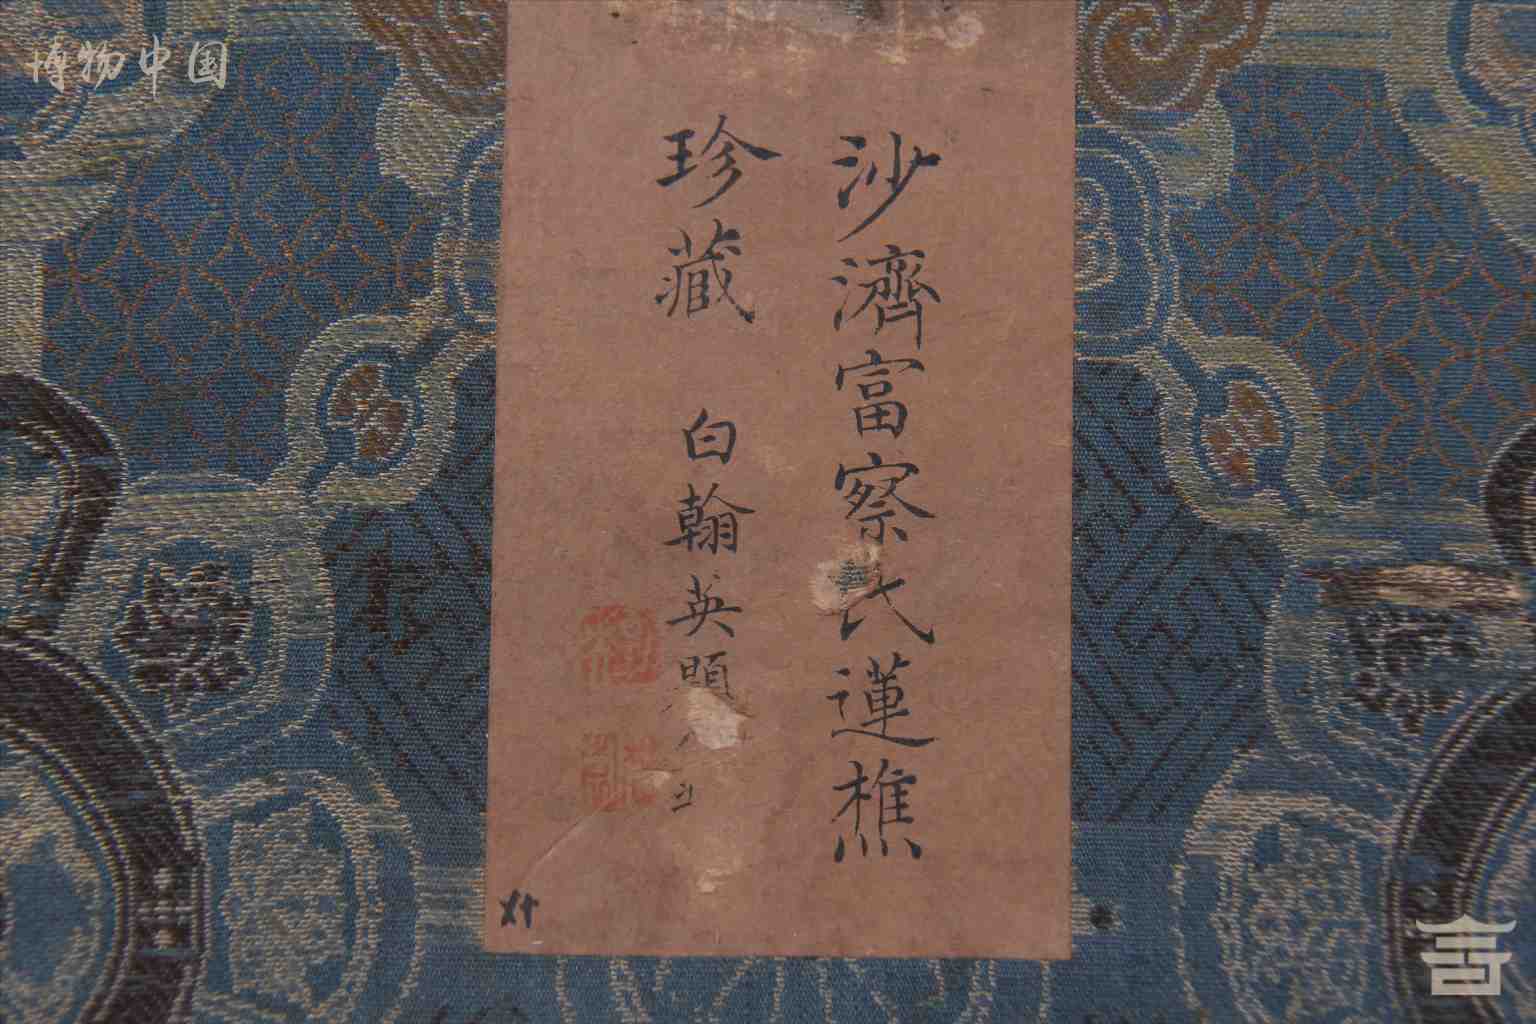 博物中国
沙濟富察氏蓮樵
珍藏 白翰英題